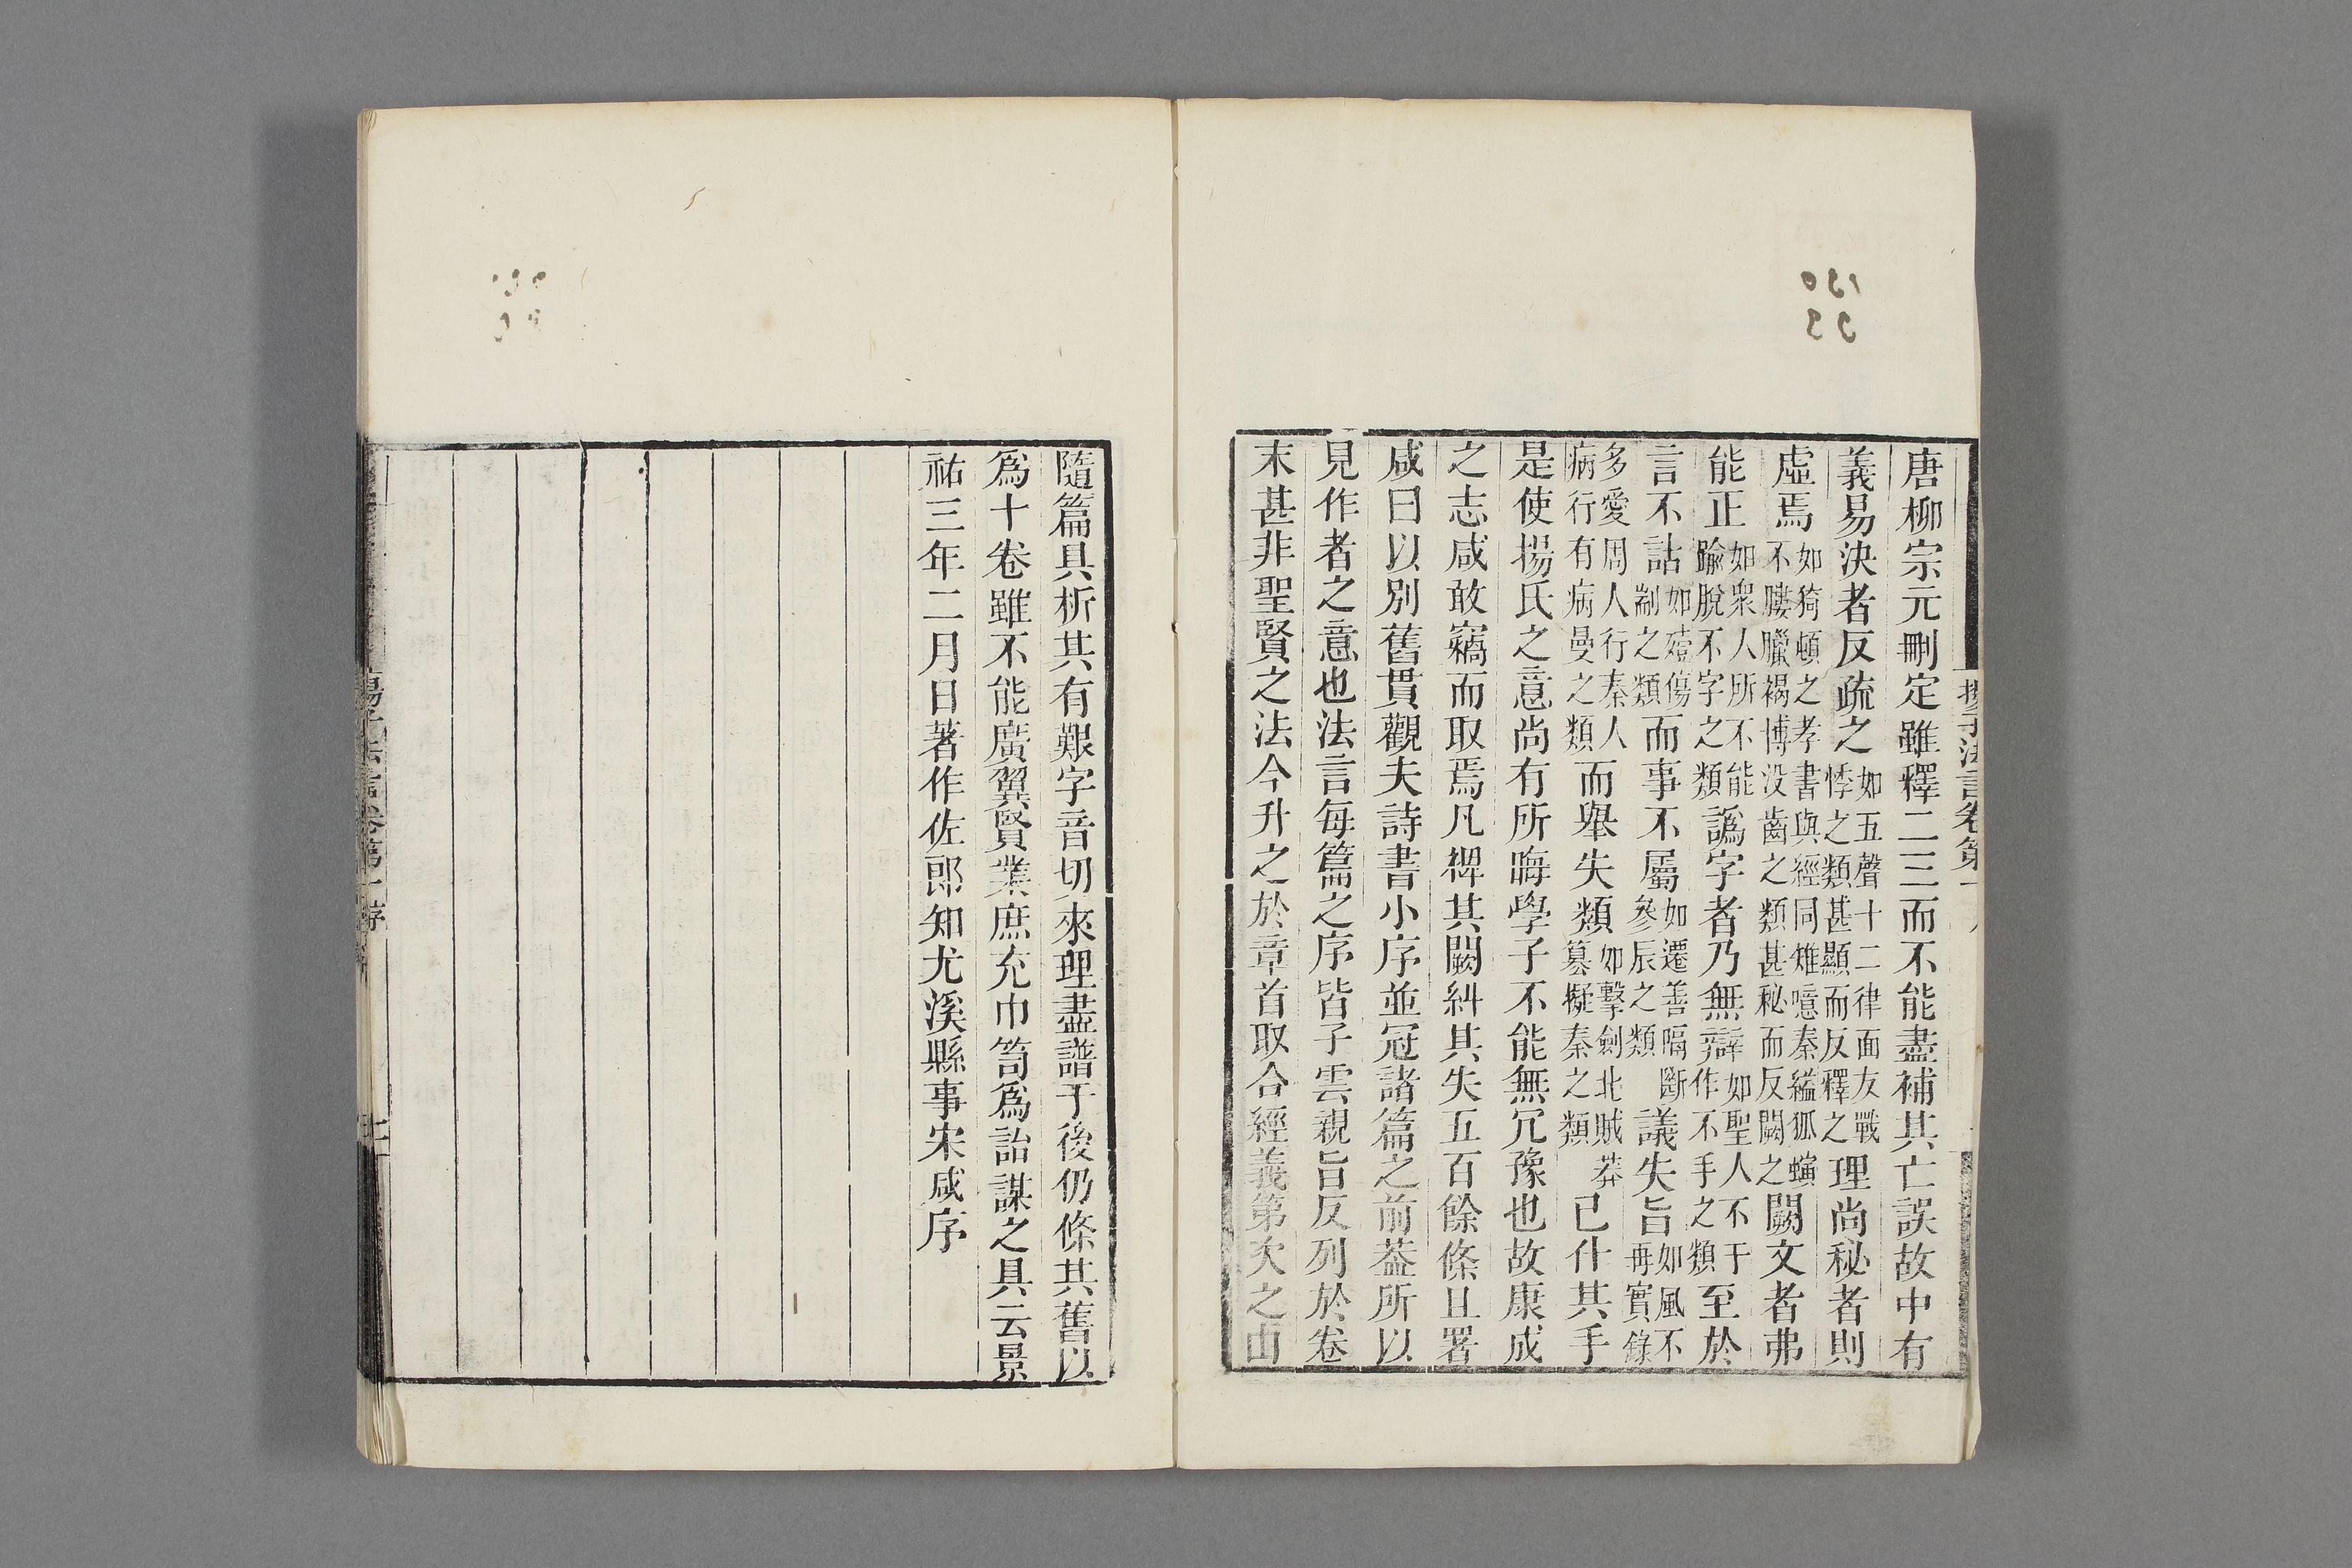 唐柳宗元刪定雖釋二三而不能盡補其亡誤故中有
義易決者反疏之如五聲十二律面友戰悸之類甚顯而反釋之理尚秘者則
虛焉如猗頓之孝書與經同雉噫秦縊狐螾不膢臘褐博没齒之類甚秘而反闕之闕文者弗
能正如衆人所不能踰脫不字之類譌字者乃無辯如聖人不干作不手之類至於
言不詁如殪傷剬之類而事不屬如遷善隔斷參辰之類議失旨如風不再實錄
多愛周人行秦人病行有病曼之類而舉失類如擊劍北賊莽篡擬秦之類已什其手
是使揚氏之意尚有所晦學子不能無冗豫也故康成
之志咸敢竊而取焉凡裨其闕糾其失五百餘條且署
咸曰以別舊貫觀夫詩書小序並冠諸篇之前葢所以
見作者之意也法言每篇之序皆子雲親旨反列於卷
末甚非聖賢之法今升之於章首取合經義第次之由
隨篇具析其有艱字音切來理盡譜于後仍條其舊以
爲十卷雖不能廣翼賢業庶充巾笥爲詒謀之具云景
祐三年二月日著作佐郎知尤溪縣事宋咸序